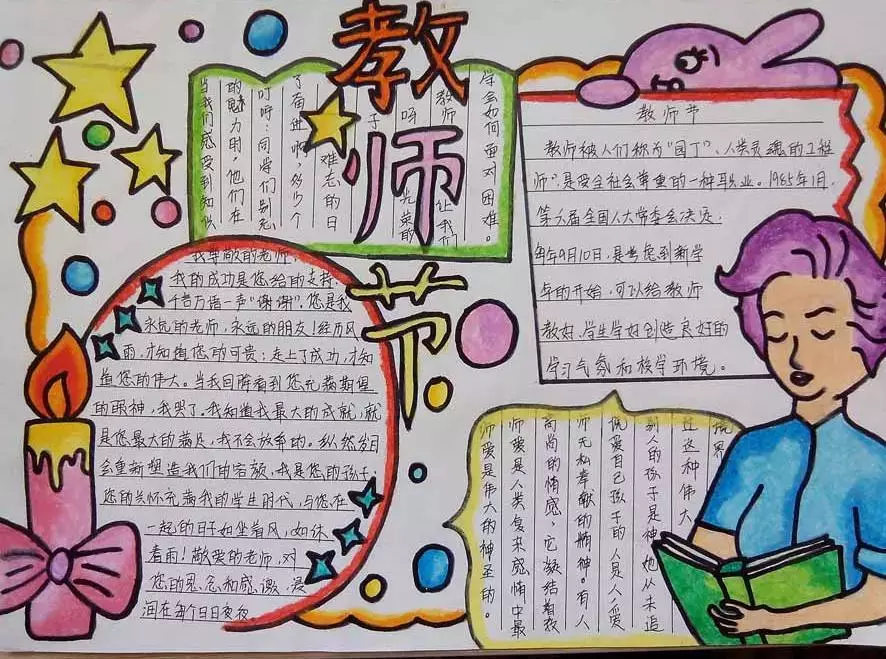 教师节
学会如何面对困难。
教师
让我们
呀
光荣的
子
难忘的日
了奋进啊，多少个
叮咛：同学们别忘
的魅力时，他们在
当我们感受到知识
教师节
教师被人们称为“园丁”、人类灵魂的工程
师”，是受全社会尊重的一种职业。1985年1月，
第六届全国人大常委会决定，
每年9月10日，是考虑到新学
年的开始，可以给教师
教好、学生学好创造良好的
学习气氛和校学环境。
我尊敬的老师
我的成功是您给的支持，
千言万语一声“谢谢”。您是我
永远的老师，永远的朋友！经历风
雨，才知道您的可贵；走上了成功，才知
道您的伟大。当我回眸看到您充满期望
的眼神，我哭了。我知道我最大的成就，就
是您最大的满足，我不会放弃的。纵然岁月
会重新塑造我们的容颜，我是您的孩子；
您的关怀充满我的学生时代，与您在
一起的日子如坐着风，如沐
着雨！敬爱的老师，对
您的思念和感激，浸
润在每个日日夜夜
境界
过这种伟大
别人的孩子是神，她从未追
说爱自己孩子的人是人，爱
师无私奉献的精神。有人
高尚的情感，它凝结着教
师爱是人类复来感情中最
师爱是伟大的神圣的。